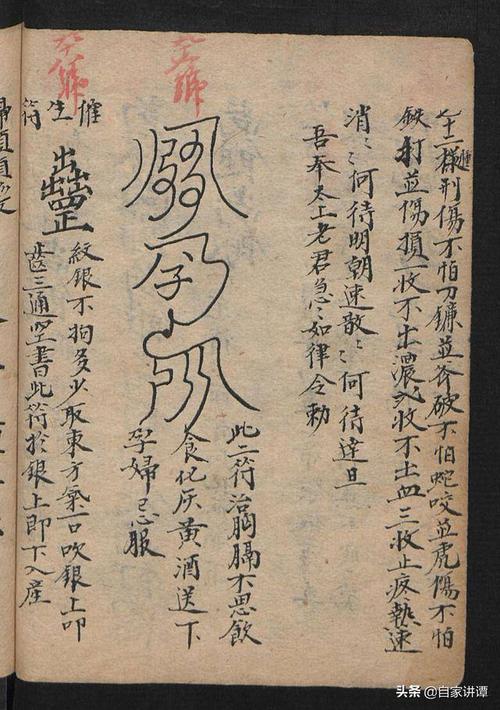 七十二樣刑傷不怕刀鐮並斧破不怕蛇咬並虎傷不怕
鉄打並傷損一收不出濃二收不出血三收止疼執速
消〻何待明朝速散〻何待達旦
吾奉太上老君急〻如律令勅
此二符治胸膈不思飲
食化灰黄酒送下
孕婦忌服
催生符
紋銀不拘多少取東方氣一口吹銀上叩
齒三通空書此符於銀上即下入産
头条 @自家讲谭